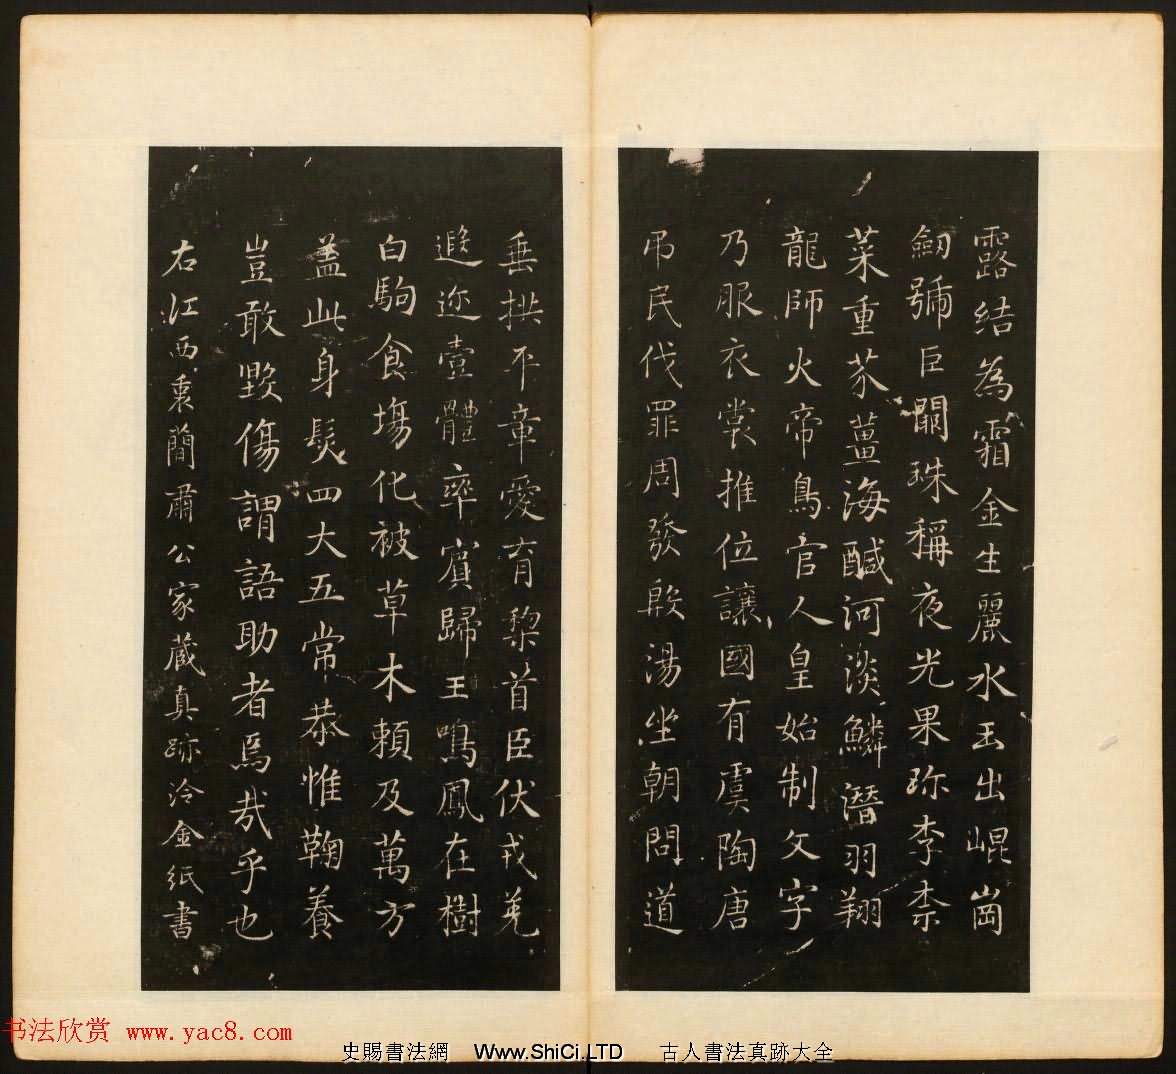 露結為霜金生麗水玉出崐崗
劒號巨闕珠稱夜光果珎李柰
菜重芥薑海醎河淡鱗潛羽翔
龍師火帝鳥官人皇始制文字
乃服衣裳推位讓國有虞陶唐
吊民伐罪周發殷湯坐朝問道
垂拱平章愛育黎首臣伏戎羌
遐迩壹體率賓歸王鳴鳳在樹
白駒食塲化被草木賴及萬方
盖此身髮四大五常恭惟鞠養
豈敢毀傷謂語助者焉哉乎也
右江西袁蘭肅公家藏真跡冷金紙書
书法欣赏 www.yac8.com
史賜書法網 Www.ShiCi.LTD 古人書法真跡大全